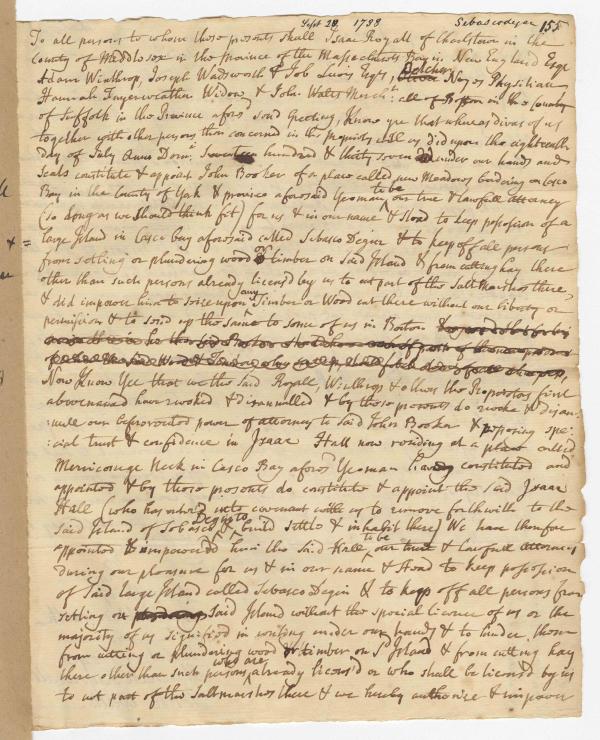 Sept 28. 1738 Sebascodegan 155
To all persons to whom these presents shall Isaac Royall of Charlstown in the
County of Middlesex in the Province of the Massachusets Bay in New England Esqr
Adam Winthrop, Joseph Wadsworth & Job Lewis Esqrs, Belcher Noyes Physitian,
Hannah Fayerweather Widow, & John Wates Mercht. all of Boston in the County
of Suffolk in the Province aforesd send Greeting. Know yee that whereas divers of us
together with other persons then concerned in the propriety with us did upon the eighteenth
day of July Anno Domi. Seventeen hundred & thirty seven under our hands and
Seals constitute & appoint John Booker of a place called new Meadows bordering on Casco
Bay in the County of York & province aforesaid Yeoman to be our true & lawfull attorney
(so long as we should think fit) for us & in our name & stead to keep possession of a
large Island in Casco bay aforesaid called Sebasco Degin & to keep off all persons
from setling or plundering wood or timber on said Island & from cutting hay there
other than such persons already licens'd by us to cut part of the Salt Marshes there,
& did impower him to seize upon any Timber or Wood cut there without our liberty or
permission & to send up the same to some of us in Boston &
Now Know Yee that we the said Royall, Winthrop & others the Proprietors first
abovenamed have revoked & disannulled & by these presents do revoke & disan-
:nule our beforerecited power of attorney to said John Booker & reposing spe-
:cial trust & confidence in Isaac Hall now residing at a place called
Merriconege Neck in Casco Bay aforesd Yeoman have constituted and
appointed & by these presents do constitute & appoint the said Isaac
Hall (who has entred into covenant with us to remove forthwith to the
said Island of Sebasco Degin & to build settle & inhabit there) We have therefore
appointed & impowered him the said Hall to be our true & lawfull attorney
during our pleasure for us & in our name & stead to keep possession
of said large Island called Sebasco Degin & to keep off all persons from
setling on said Island without the special licence of us or the
majority of us signified in writing under our hands & to hinder them
from cutting or plundering wood or timber on sd Island & from cutting hay
there other than such persons who are already licens'd or who shall be licens'd by us
to cut part of the Saltmarshes there & we hereby authorize & impower